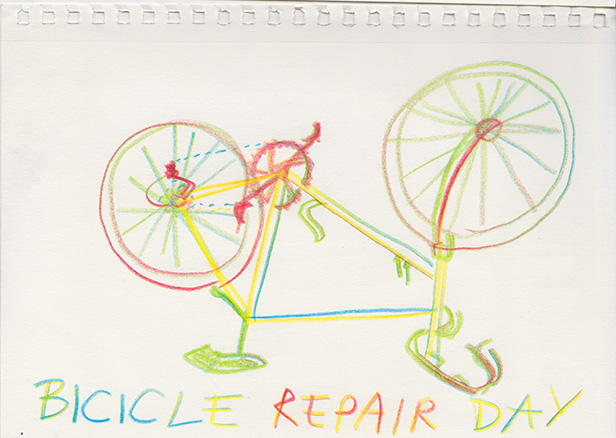 BICICLE REPAIR DAY